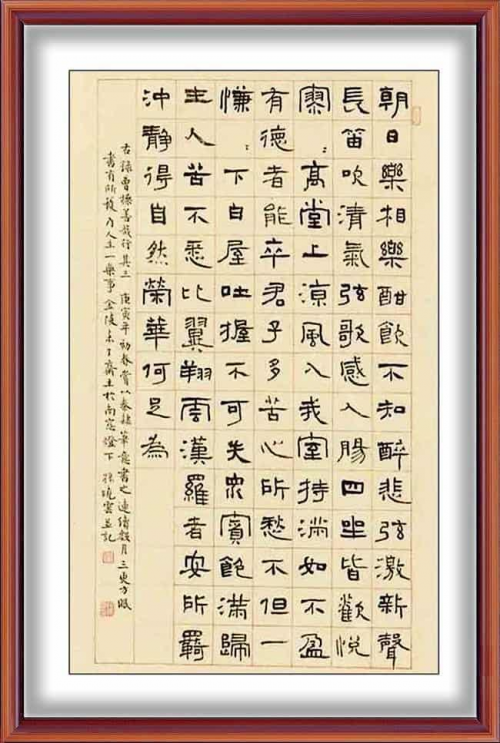 朝日樂相樂酣飲不知醉悲弦激新聲
長笛吹清氣弦歌感人腸四坐皆歡悅
寥:高堂上涼風入我室持滿如不盈
有德者能卒君子多苦心所愁不但一
慊:下白屋吐握不可失眾賓飽滿歸
主人苦不悉比翼翔雲漢羅者安所羈
沖靜得自然榮華何足為
右錄曹操善哉行其三庚寅年初春嘗以秦隸筆意書之連續數月三更方眠
書有所獲乃人生一樂事金陵齋主於南窗燈下孫曉雲並記